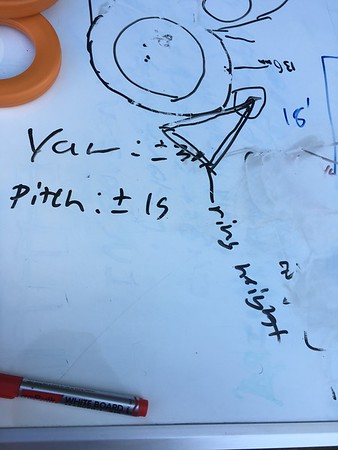 136mm
18'
Yaw: ±
Pitch: ± 15
ring height
WHITE BOARD